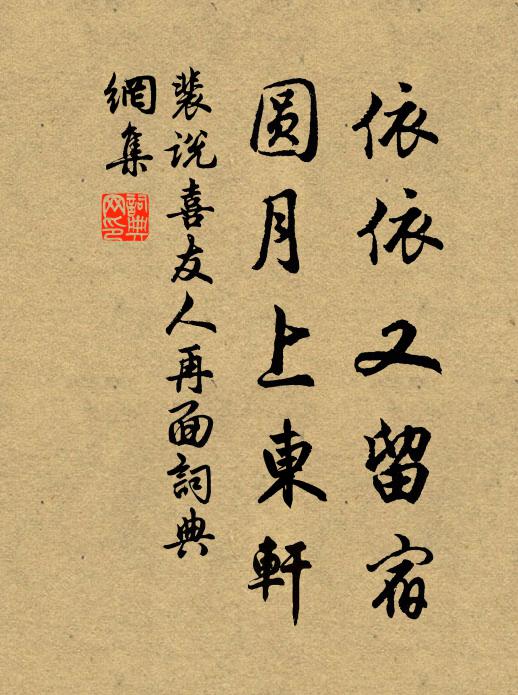 依依又留宿
圆月上東軒
裴説喜友人再面詞典
網集
詞典
网印